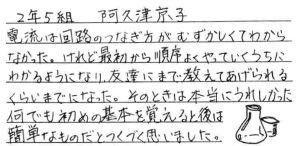 2年5組 阿久津京子
電流は回路のつなぎ方がむずかしくてわから
なかった。けれど最初から順序よくやっていくうちに
わかるようになり、友達にまで教えてあげられる
くらいまでになった。そのときは本当にうれしかった
何でも初めの基本を覚えると後は
簡単なものだとつくづく思いました。